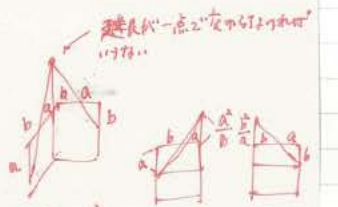 延長が一点で交わらなければ
いけない
b a
b a b
a
b a a²/b b²/a a b
a